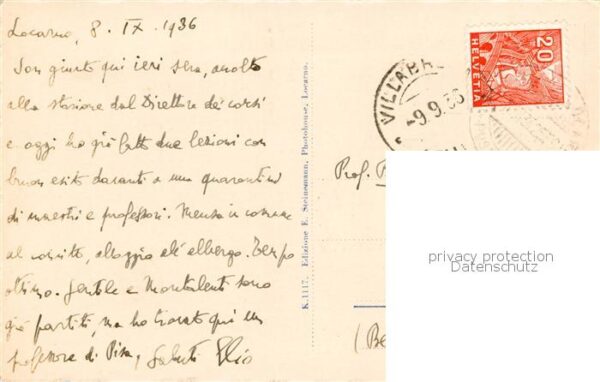 Locarno, 8. IX. 1936
Son giunto qui ieri sera, accolto
alla stazione dal Direttore de' corsi
e oggi ho già fatto due lezioni con
buon esito davanti a una quarantina
di maestri e professori. Mensa in comune
al convitto, alloggio all'albergo. Tempo
ottimo. Gentile e Montalenti sono
già partiti, ma ho trovato qui un
professore di Pisa, Saluti Elio
K.1117. Edizione E. Steinemann, Photohouse, Locarno.
20
HELVETIA
VILLABR
-9.9.36
Prof.
privacy protection
Datenschutz
(Be